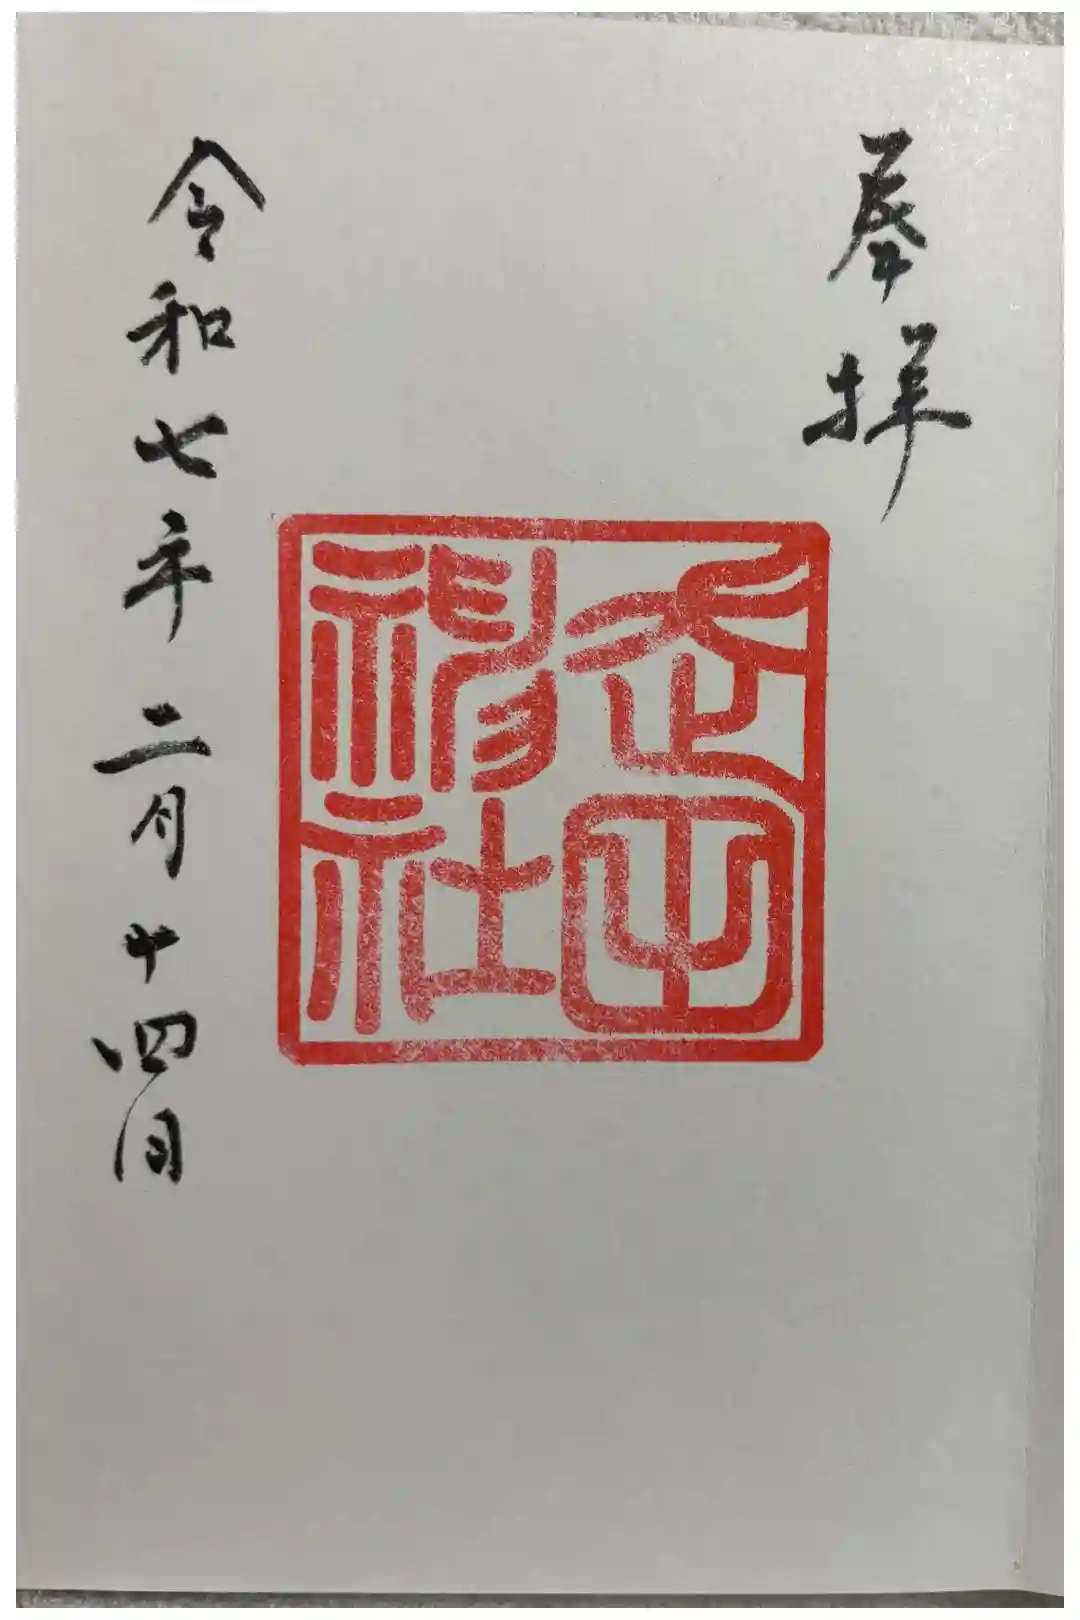 奉拝
武田神社
令和七年二月十四日